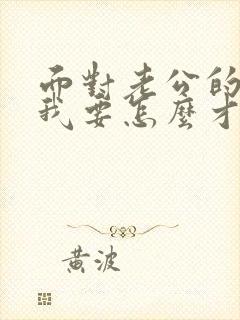 而對老公的
我要怎麼才
黃波